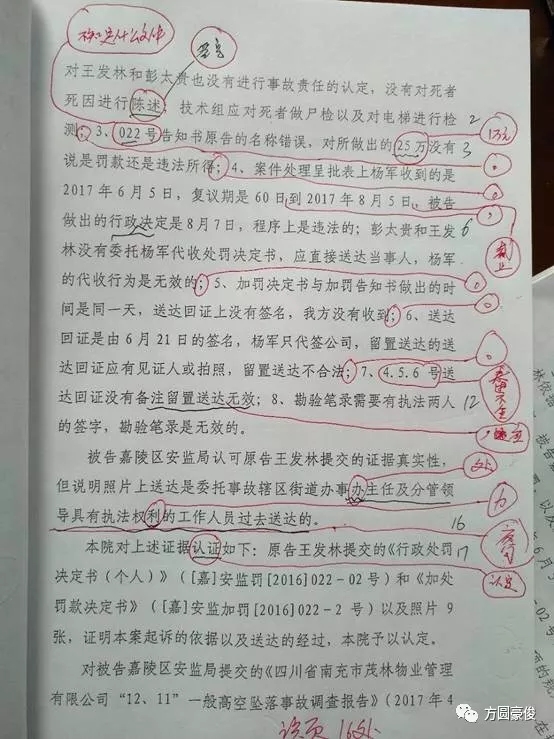 确定什么文件
对王发林和彭太贵也没有进行事故责任的认定，没有对死者
死因进行陈述，技术组应对死者做尸检以及对电梯进行检 2
测；3、022号告知书原告的名称错误，对所做出的25万没有 3
说是罚款还是违法所得；4、案件处理呈批表上杨军收到的是
2017年6月5日，复议期是60日到2017年8月5日，被告
做出的行政决定是8月7日，程序上是违法的；彭太贵和王发 6
林没有委托杨军代收处罚决定书，应直接送达当事人，杨军
的代收行为是无效的；5、加罚决定书与加罚告知书做出的时
间是同一天，送达回证上没有签名，我方没有收到；6、送达
回证是由6月21日的签名，杨军只代签公司，留置送达的送
达回证应有见证人或拍照，留置送达不合法；7、4.5.6号送
达回证没有备注留置送达无效；8、勘验笔录需要有执法两人 12
的签字，勘验笔录是无效的。
被告嘉陵区安监局认可原告王发林提交的证据真实性，
但说明照片上送达是委托事故辖区街道办事办主任及分管领 力
导具有执法权利的工作人员过去送达的。 16
本院对上述证据认证如下：原告王发林提交的《行政处罚 17
决定书（个人）》（[嘉]安监罚[2016]022-02号）和《加处 认定
罚款决定书》（[嘉]安监加罚[2016]022-2 号）以及照片 9
张，证明本案起诉的依据以及送达的经过，本院予以认定。
对被告嘉陵区安监局提交的《四川省南充市茂林物业管理
有限公司“12、11”一般高空坠落事故调查报告》（2017年4
该页16处
方圆豪俊